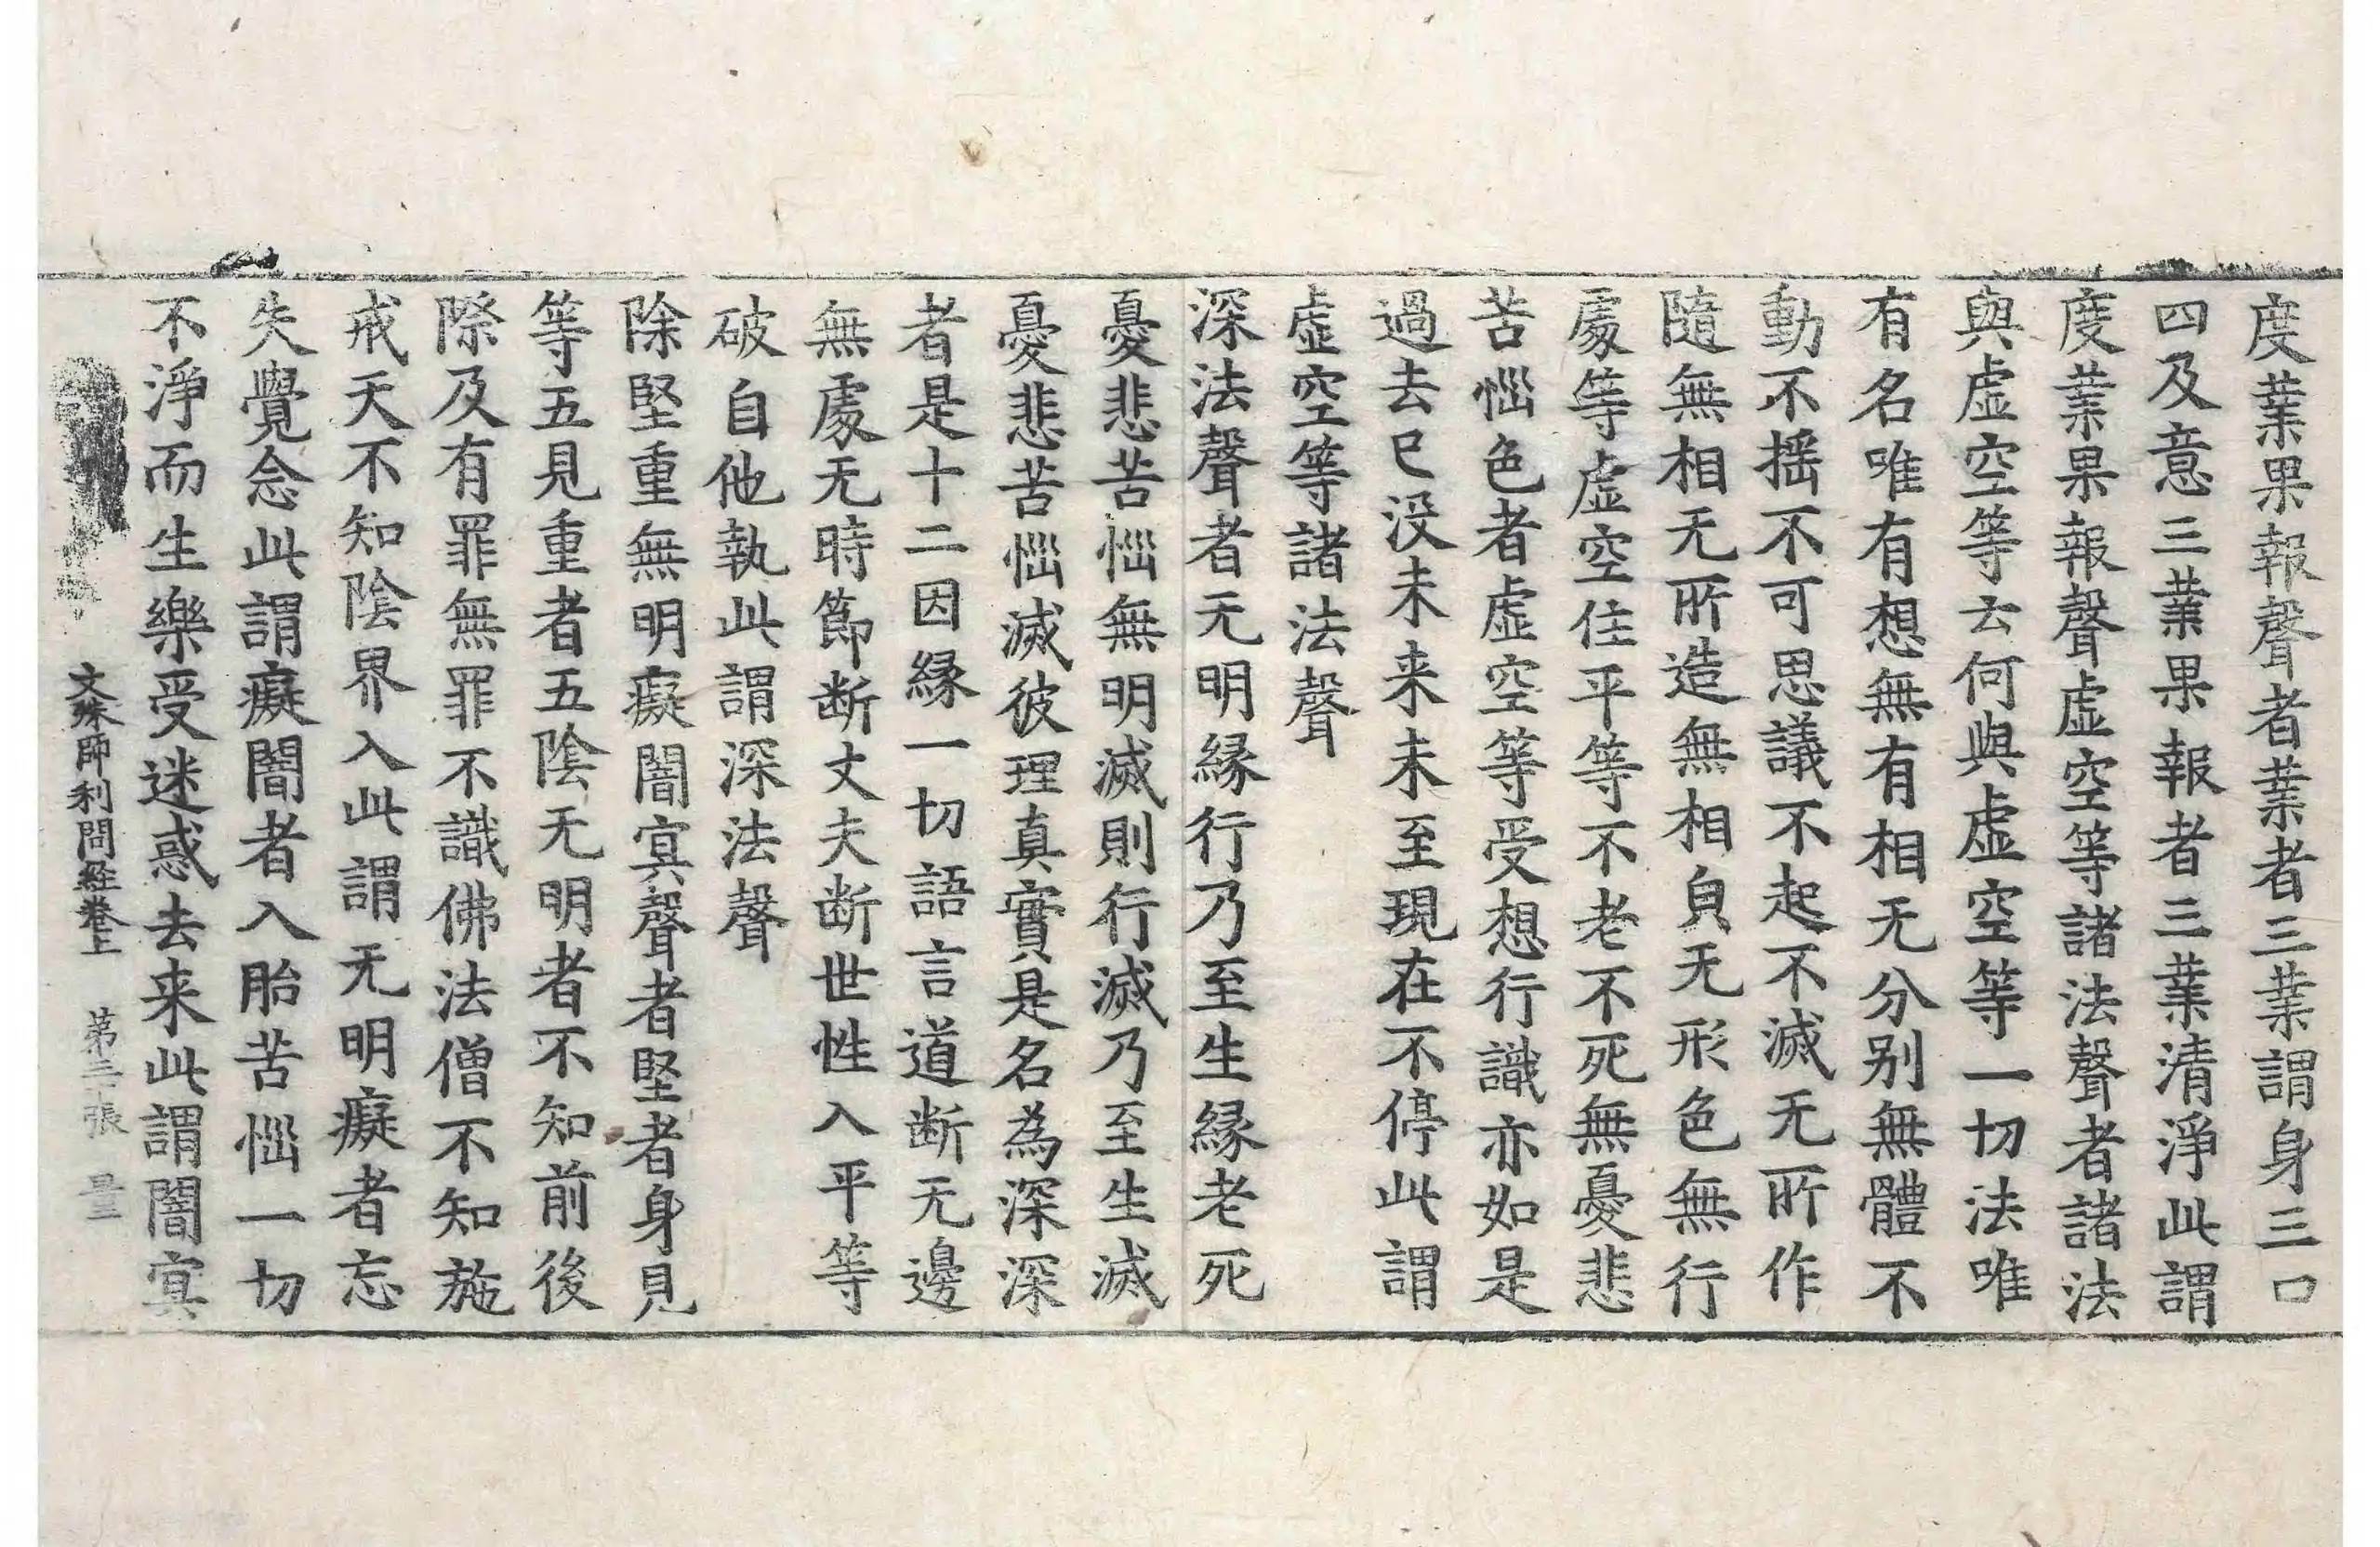 度業果報聲者業者三業謂身三口
四及意三業果報者三業清淨此謂
度業果報聲虛空等諸法聲者諸法
與虛空等云何與虛空等一切法唯
有名唯有想無有相无分別無體不
動不搖不可思議不起不滅无所作
隨無相无所造無相貟无形色無行
處等虛空住平等不老不死無憂悲
苦惱色者虛空等受想行識亦如是
過去已没未来未至現在不停此謂
虛空等諸法聲
深法聲者无明緣行乃至生緣老死
憂悲苦惱無明滅則行滅乃至生滅
憂悲苦惱滅彼理真實是名為深深
者是十二因緣一切語言道断无邊
無處无時節断丈夫断世性入平等
破自他執此謂深法聲
除堅重無明癡闇㝠聲者堅者身見
等五見重者五陰无明者不知前後
際及有罪無罪不識佛法僧不知施
戒天不知陰界入此謂无明癡者忘
失覺念此謂癡闇者入胎苦惱一切
不淨而生樂受迷惑去来此謂闇㝠
文殊師利問経卷上 第三張 量